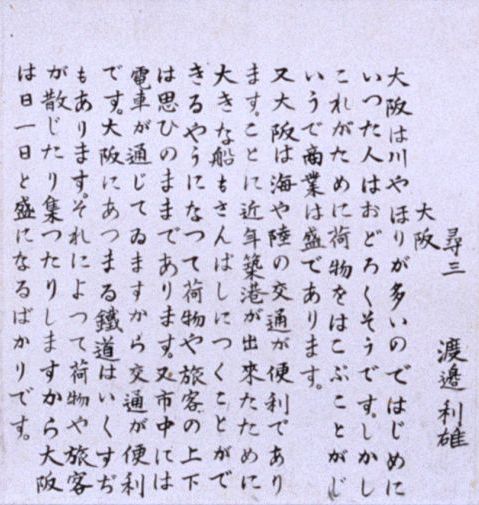 尋三 渡邉利雄
大阪
大阪は川やほりが多いのではじめに
いつた人はおどろくそうです。しかし
これがために荷物をはこぶことがじ
いうで商業は盛であります。
又大阪は海や陸の交通が便利であり
ます。ことに近年築港が出來たために
大きな船もさんばしにつくことがで
きるやうになつて荷物や旅客の上下
は思ひのままであります。又市中には
電車が通じてゐますから交通が便利
です。大阪にあつまる鐵道はいくすぢ
もあります。それによつて荷物や旅客
が散じたり集つたりしますから大阪
は日一日と盛になるばかりです。